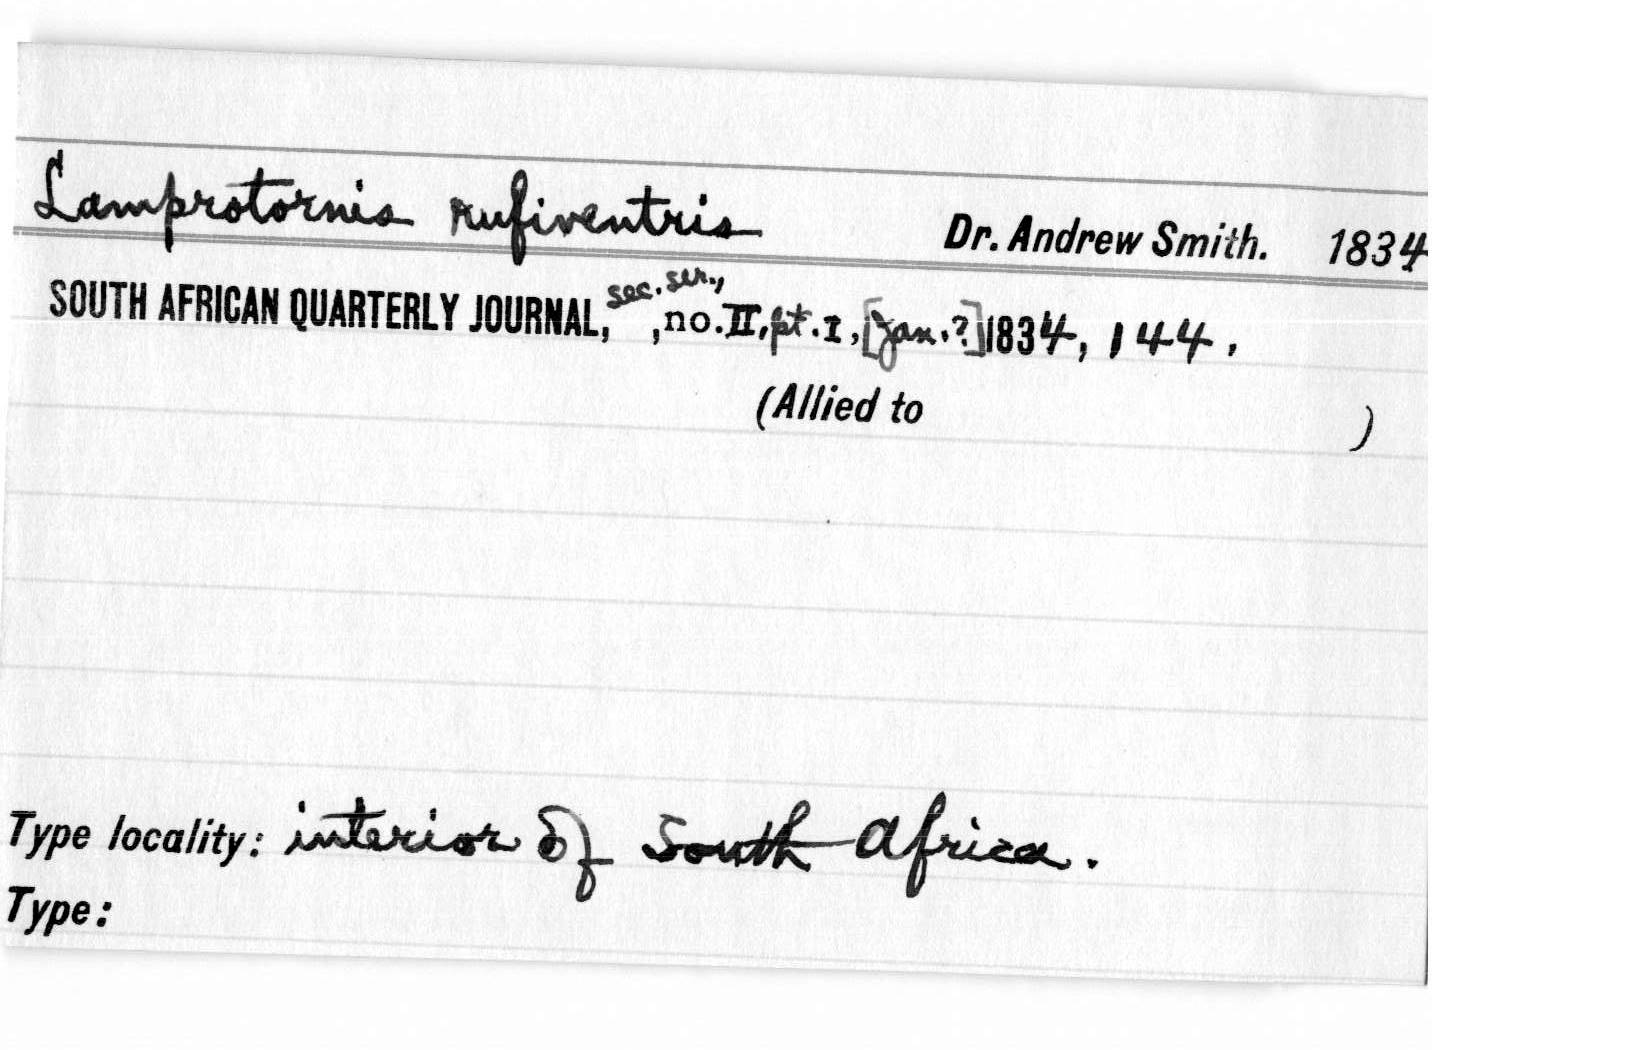 Lamprotornis rufiventris Dr. Andrew Smith. 1834
SOUTH AFRICAN QUARTERLY JOURNAL, sec. ser., , no. II, pt. I, [Jan.?] 1834, 144.
(Allied to )
Type locality: interior of South Africa.
Type: